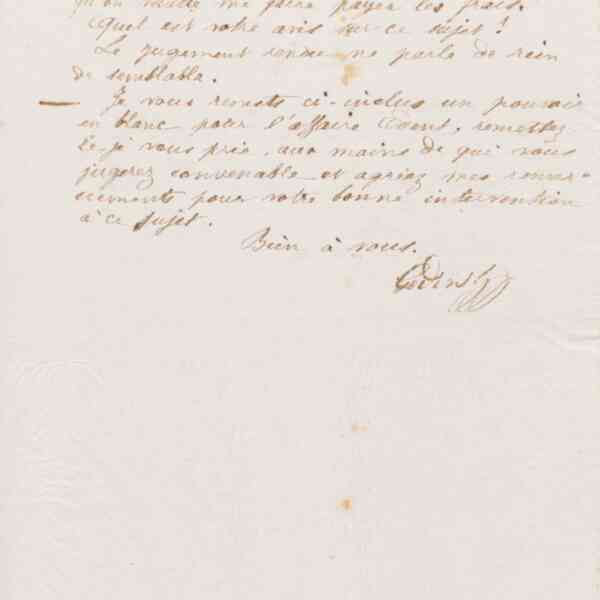 qu'on veuille me faire payer les frais.
Quel est votre avis sur ce sujet!
Le jugement rendu ne parle de rien
de semblable.
— Je vous remets ci-inclus un pouvoir
en blanc pour l'affaire Coent, remettez
le-je vous prie, aux mains de qui vous
jugerez convenable et agréez mes remer-
ciements pour votre bonne intervention
à ce sujet.
Bien à vous.